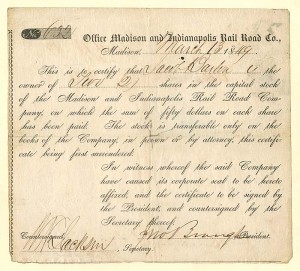 No 633
Office Madison and Indianapolis Rail Road Co.,
Madison, March 13 1849.
This is to certify that Jacob Barton is the
owner of Two (2) shares in the capital stock
of the Madison and Indianapolis Rail Road Com-
pany, on which the sum of fifty dollars on each share
has been paid. The stock is transferable only on the
books of the Company, in person or by attorney, this certifi-
cate being first surrendered.
In witness whereof the said Company
have caused its corporate seal to be hereto
affixed, and the certificate to be signed by
the President, and countersigned by the
Secretary thereof.
Countersigned, Jno Brough President.
Jackson Secretary.